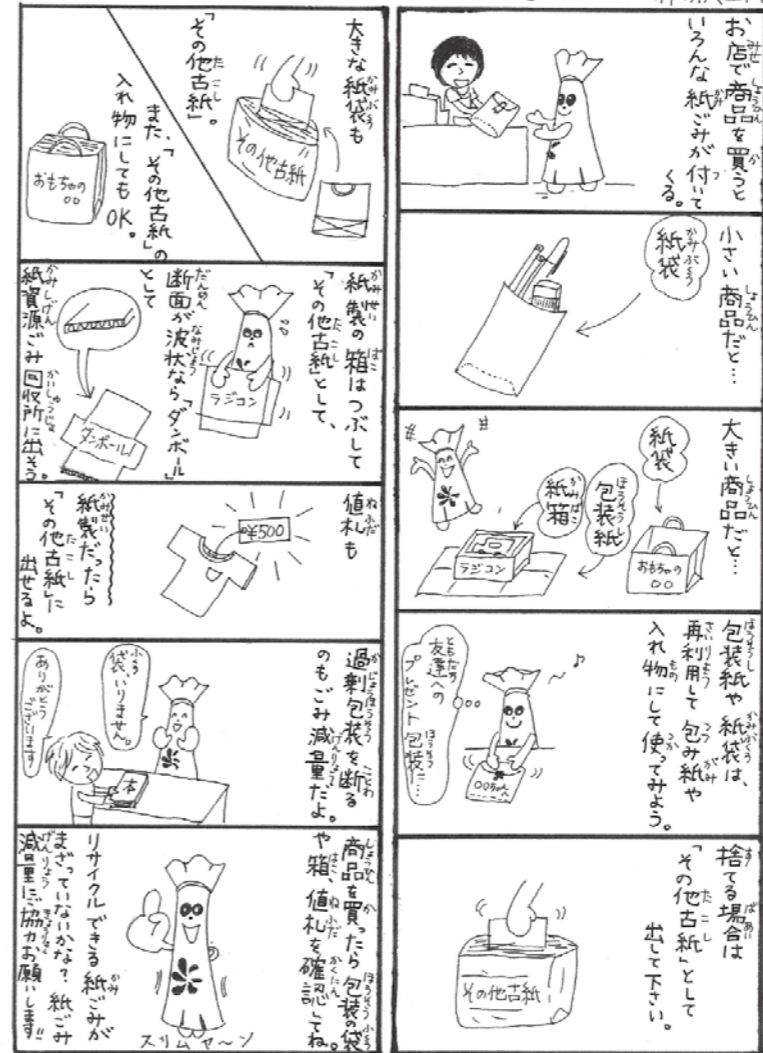 お店で商品を買うと
いろんな紙ごみが付いて
くる。
小さい商品だと…
紙袋
大きい商品だと…
紙袋
包装紙
紙箱
ラジコン
おもちゃの
○○
包装紙や紙袋は、
再利用して包み紙や
入れ物にして使ってみよう。
友達への
プレゼント包装に…
○○ちゃんへ
捨てる場合は
「その他古紙」として
出して下さい。
その他古紙
大きな紙袋も
「その他古紙」。
その他古紙
また、「その他古紙」の
入れ物にしてもOK。
おもちゃの
○○
紙製の箱はつぶして
「その他古紙」として、
断面が波状なら「ダンボール」
として
紙資源ごみ回収所に出そう。
ラジコン
ダンボール!
値札も
¥500
紙製だったら
「その他古紙」に
出せるよ。
過剰包装を断る
のもごみ減量だよ。
袋、いりません。
ありがとう
ございます
本
商品を買ったら包装の袋
や箱、値札を確認してね。
リサイクルできる紙ごみが
まざっていないかな?紙ごみ
減量にご協力お願いします!!
スリムヤ〜ン